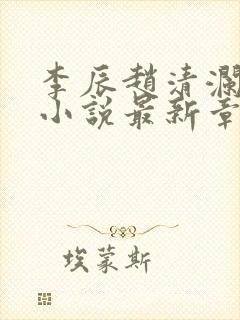 李辰趙清瀾
小說最新章
埃蒙斯